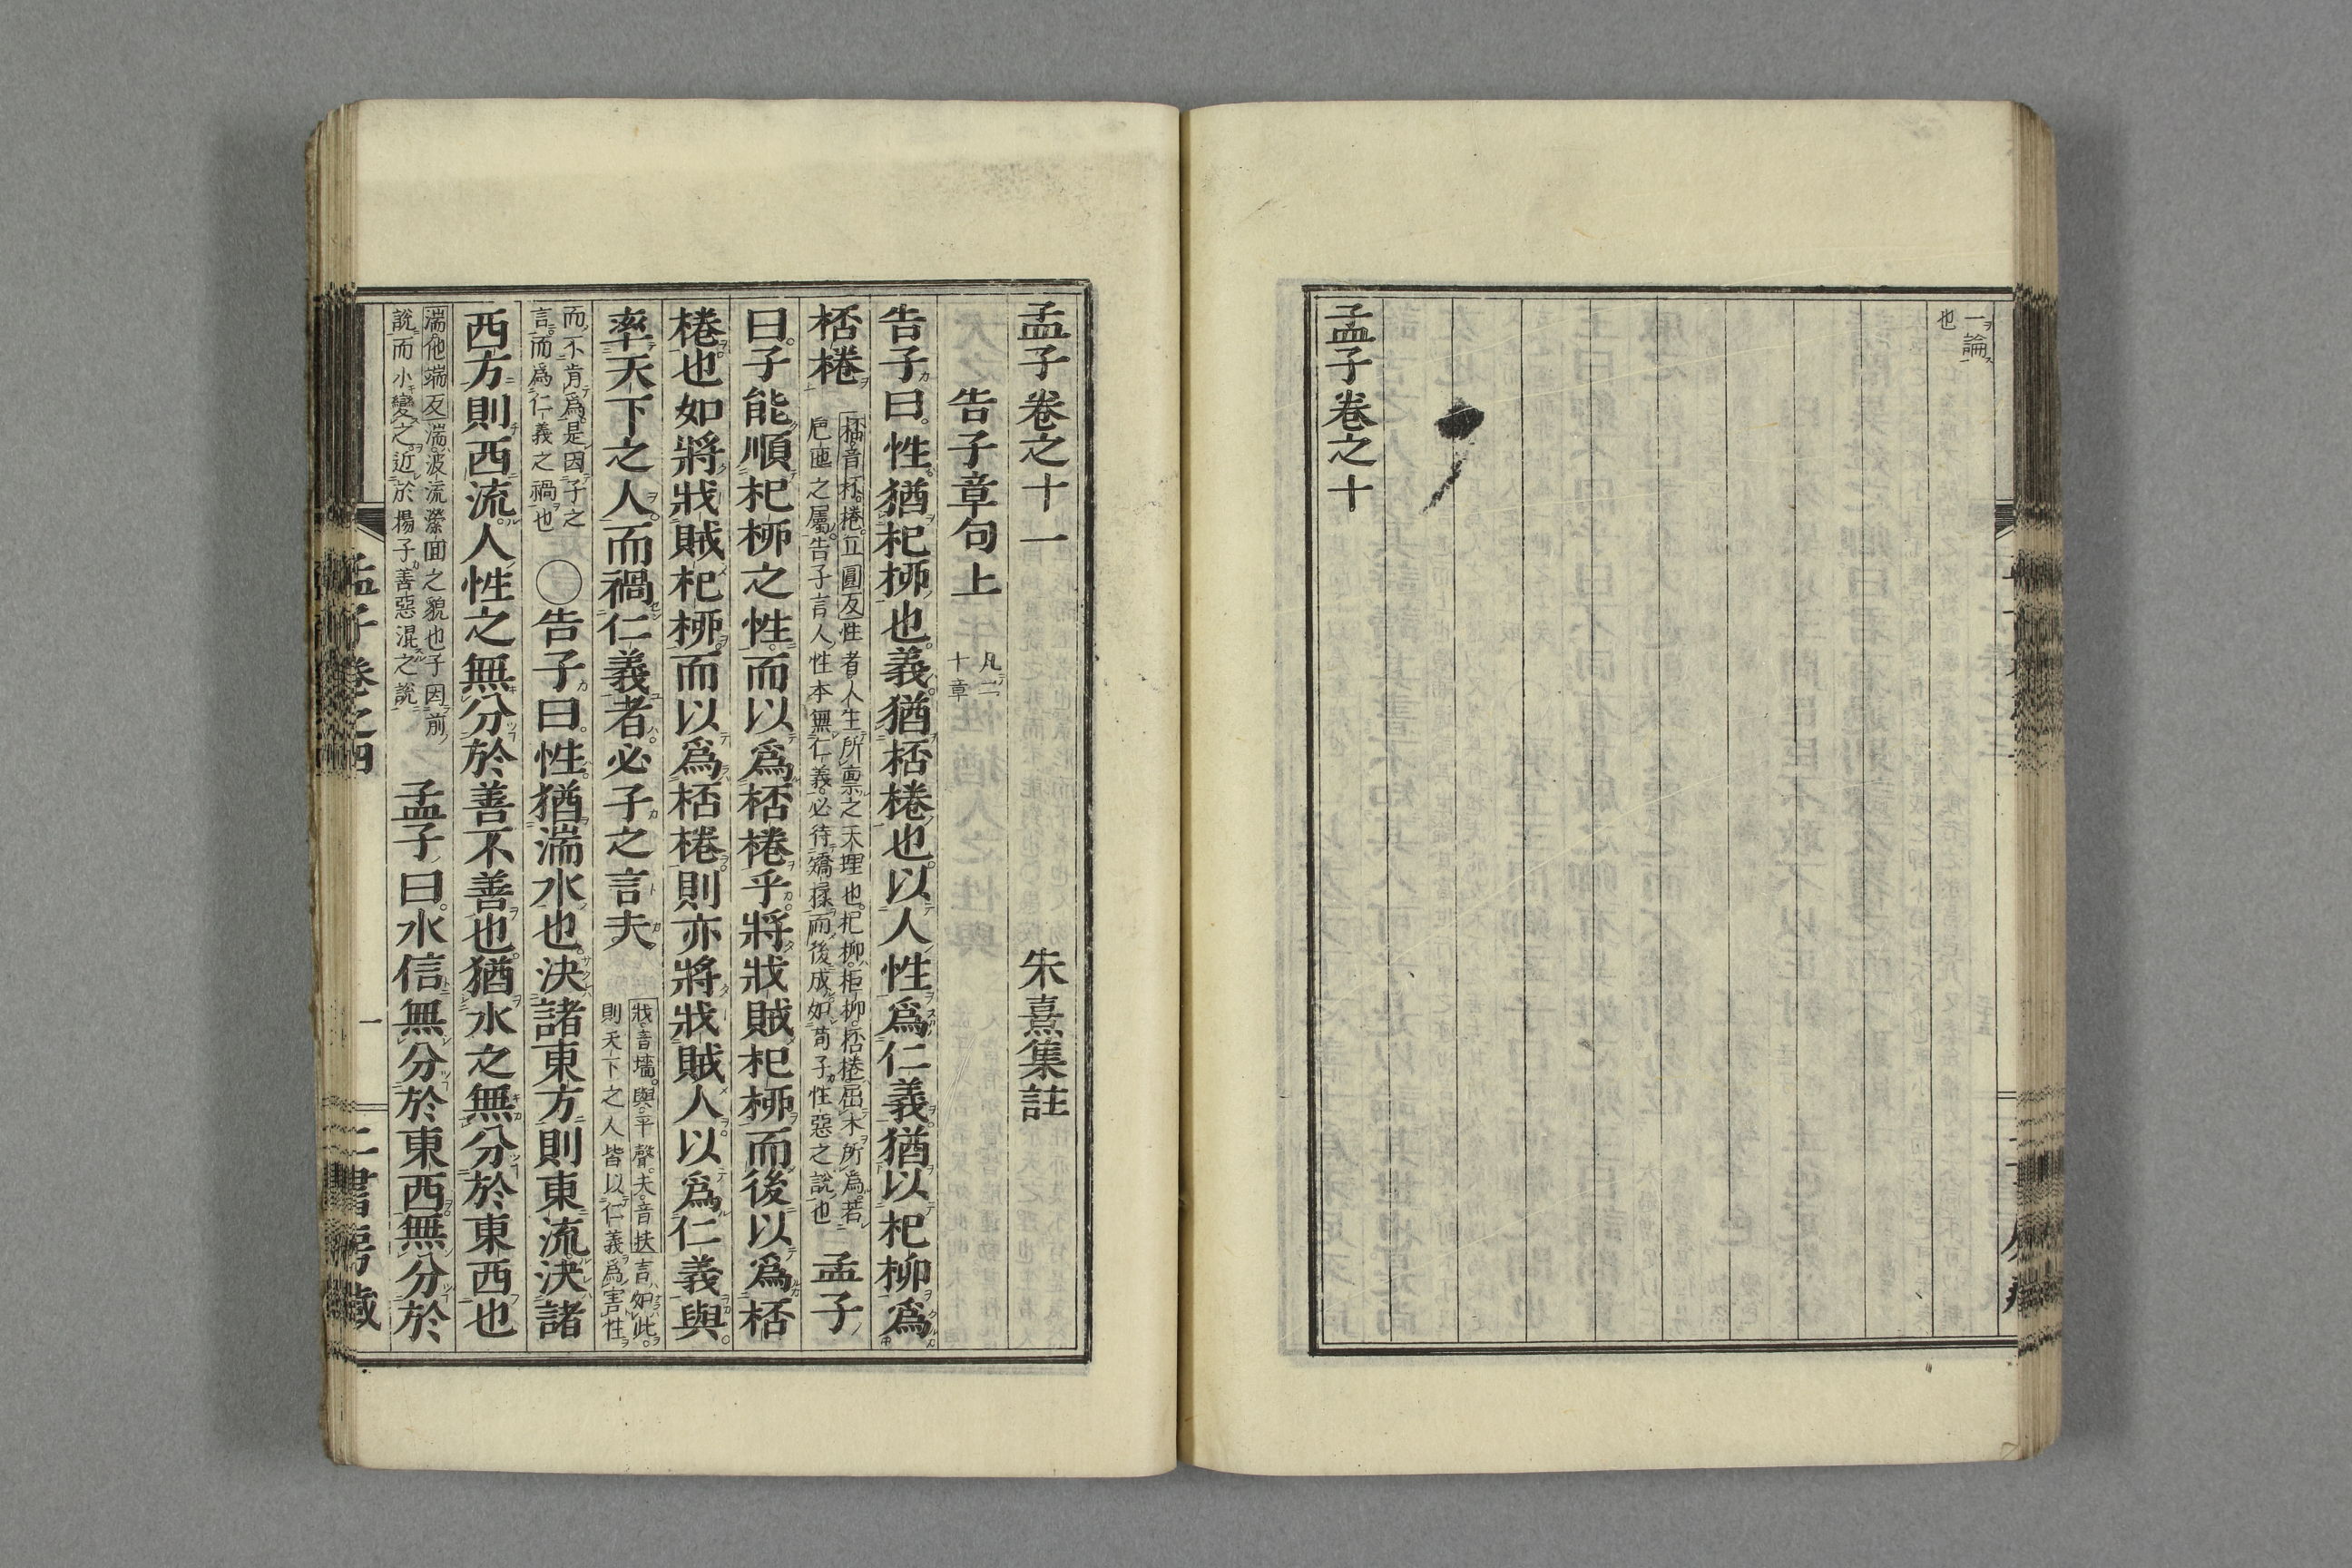 一論
也
孟子卷之十
孟子卷之十一
朱熹集註
告子章句上
凡二
十章
告子曰性猶杞柳也義猶桮棬也以人性爲仁義猶以杞柳爲
桮棬
桮音杯棬丘圓反性者人生所稟之天理也杞柳柜柳桮棬屈木所爲若
巵匜之屬告子言人性本無仁義必待矯揉而後成如荀子性惡之說也
孟子
曰子能順杞柳之性而以爲桮棬乎將戕賊杞柳而後以爲桮
棬也如將戕賊杞柳而以爲桮棬則亦將戕賊人以爲仁義與
率天下之人而禍仁義者必子之言夫
戕音墻與平聲夫音扶言如此
則天下之人皆以仁義爲害性
而不肯爲是因子之
言而爲仁義之禍也
○告子曰性猶湍水也決諸東方則東流決諸
西方則西流人性之無分於善不善也猶水之無分於東西也
湍他端反湍波流瀠囬之貌也子因前
說而小變之近於揚子善惡混之說
孟子曰水信無分於東西無分於
孟子卷之四
一
二書房藏